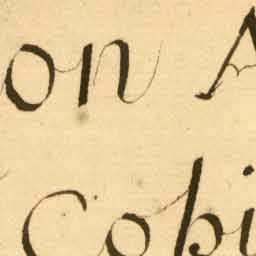 on A
Cobi